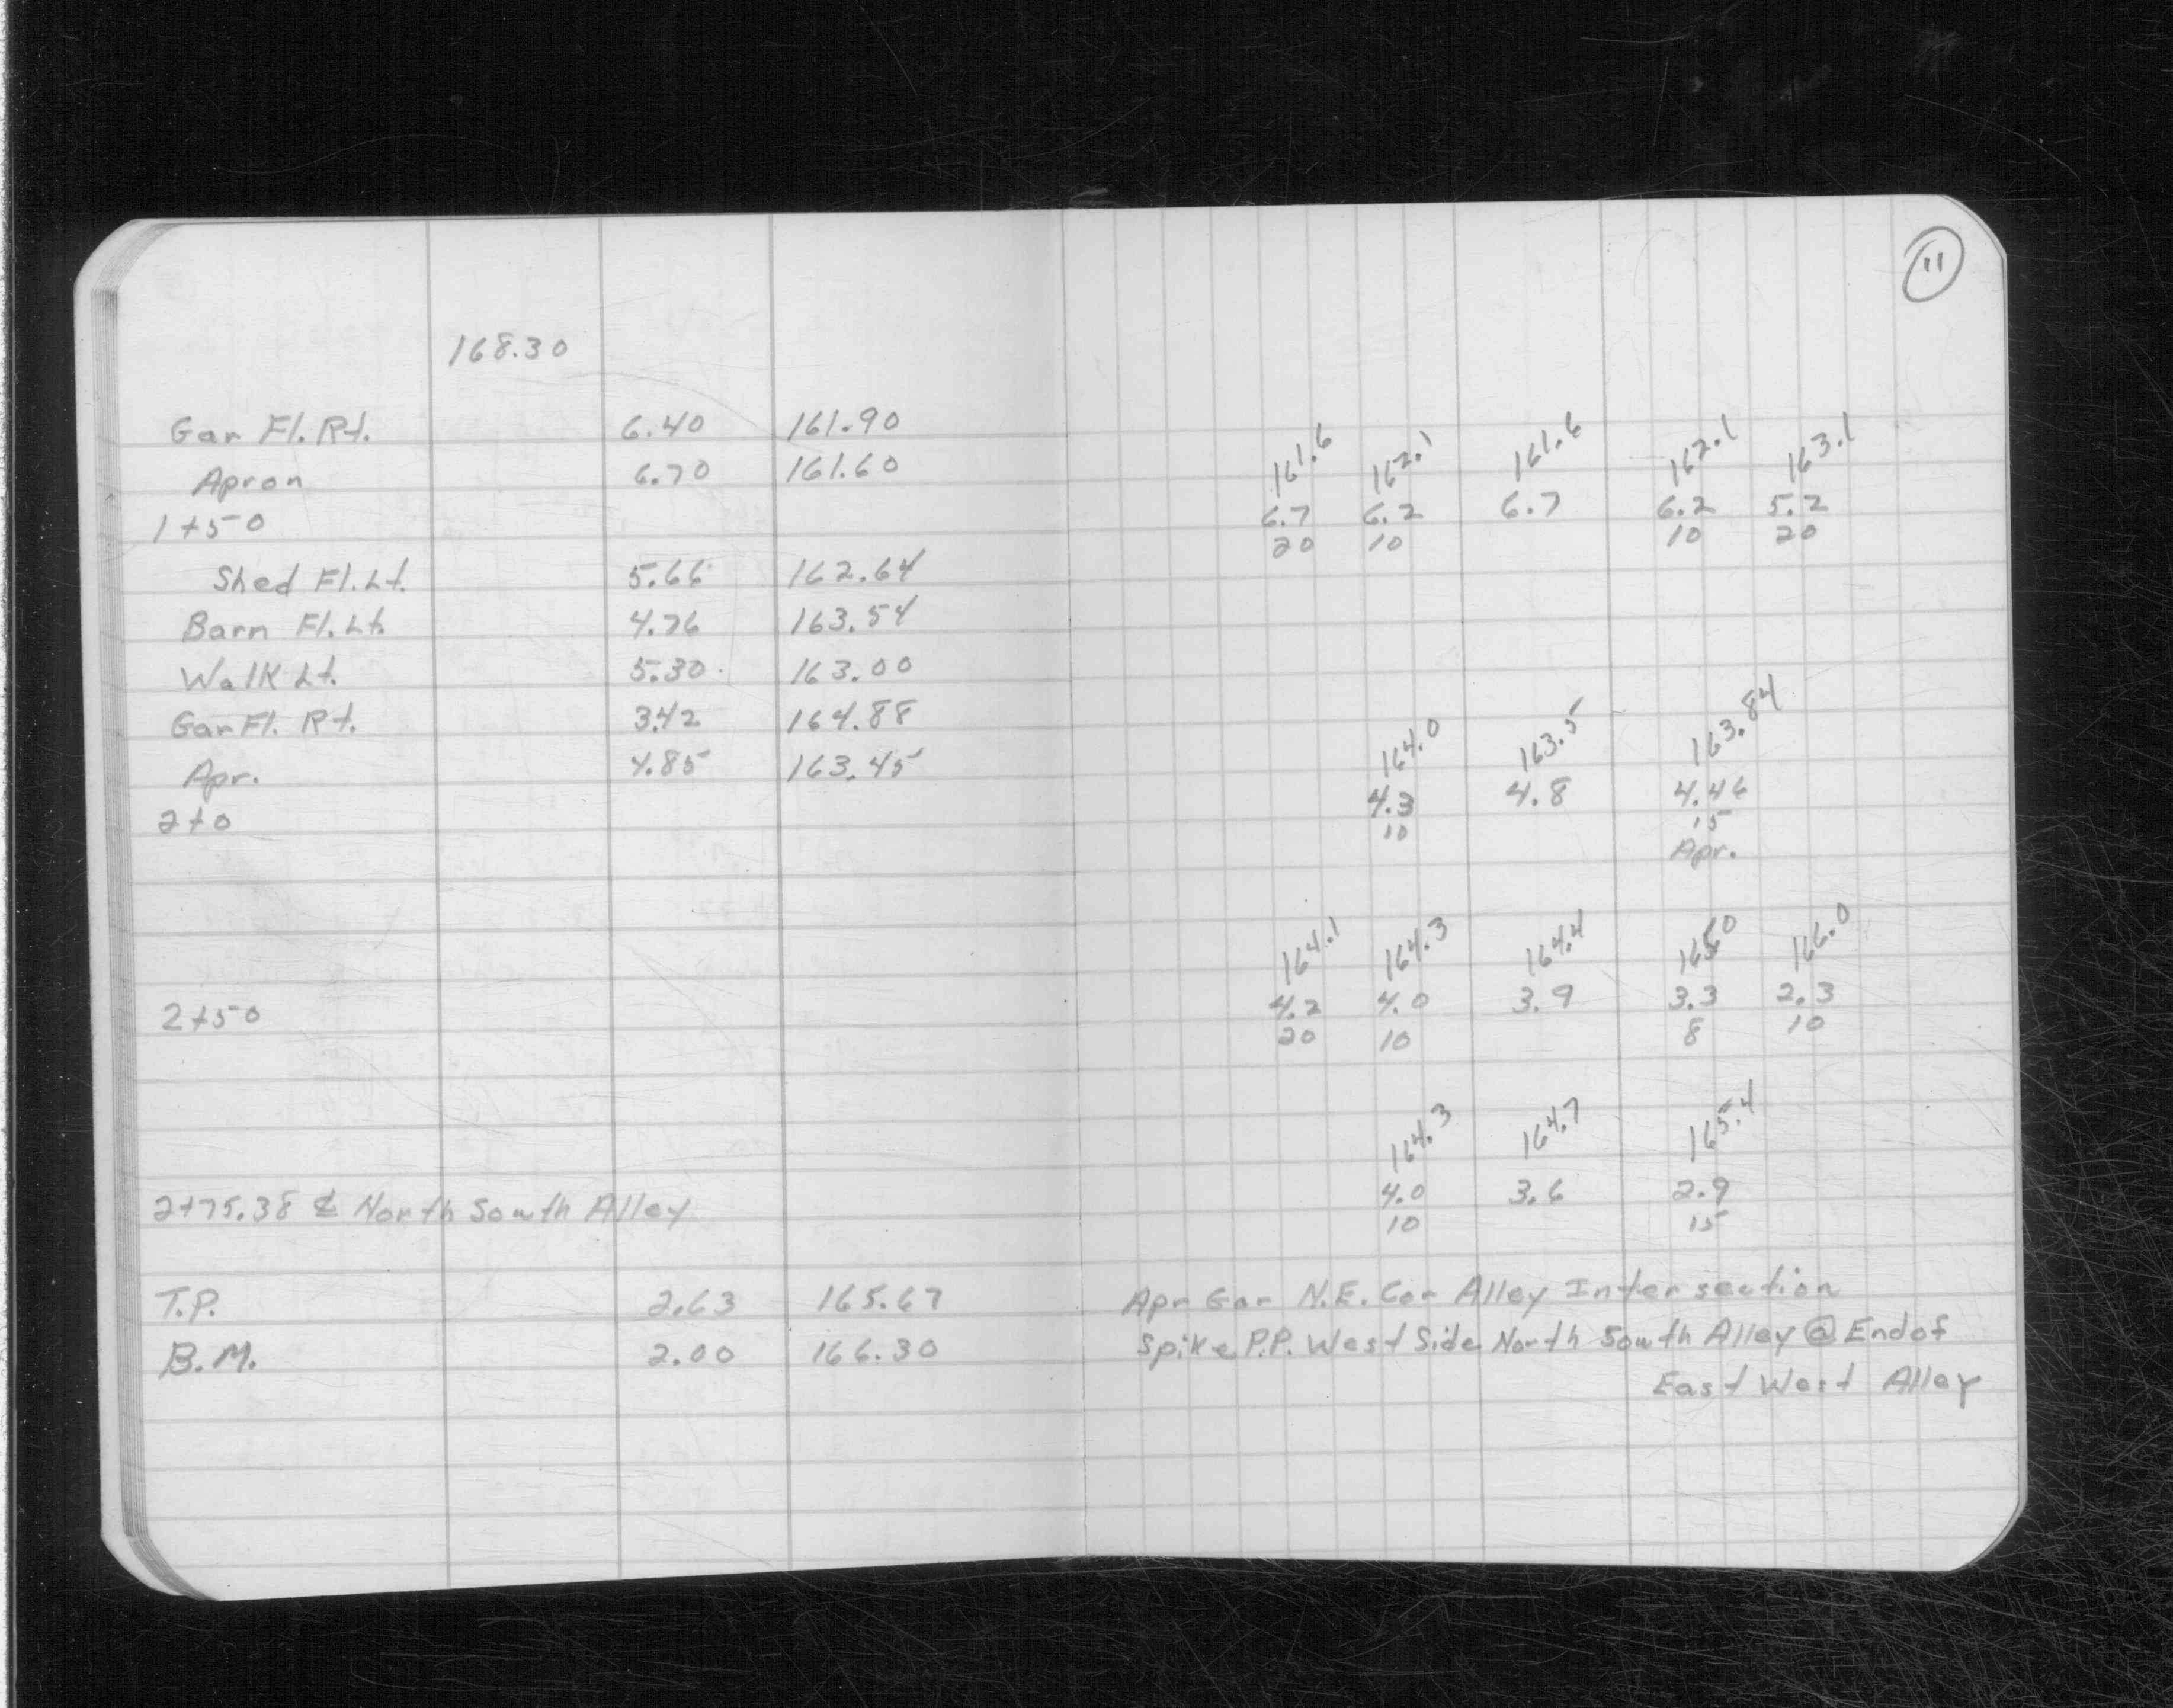 11
168.30
Gar Fl. Rt. 6.40 161.90
Apron 6.70 161.60
161.6 162.1 161.6 162.1 163.1
1+50 6.7 6.2 6.7 6.2 5.2
20 10 10 20
Shed Fl. Lt. 5.66 162.64
Barn Fl. Lt. 4.76 163.54
Walk Lt. 5.30 163.00
Gar Fl. Rt. 3.42 164.88
Apr. 4.85 163.45
164.0 163.5 163.84
2+0 4.3 4.8 4.46
10 15
Apr.
164.1 164.3 164.4 165.0 166.0
2+50 4.2 4.0 3.9 3.3 2.3
20 10 8 10
164.3 164.7 165.4
2+75.38 ℄ North South Alley 4.0 3.6 2.9
10 15
T.P. 2.63 165.67 Apr Gar N.E. Cor Alley Intersection
B.M. 2.00 166.30 Spike P.P. West Side North South Alley @ End of
East West Alley